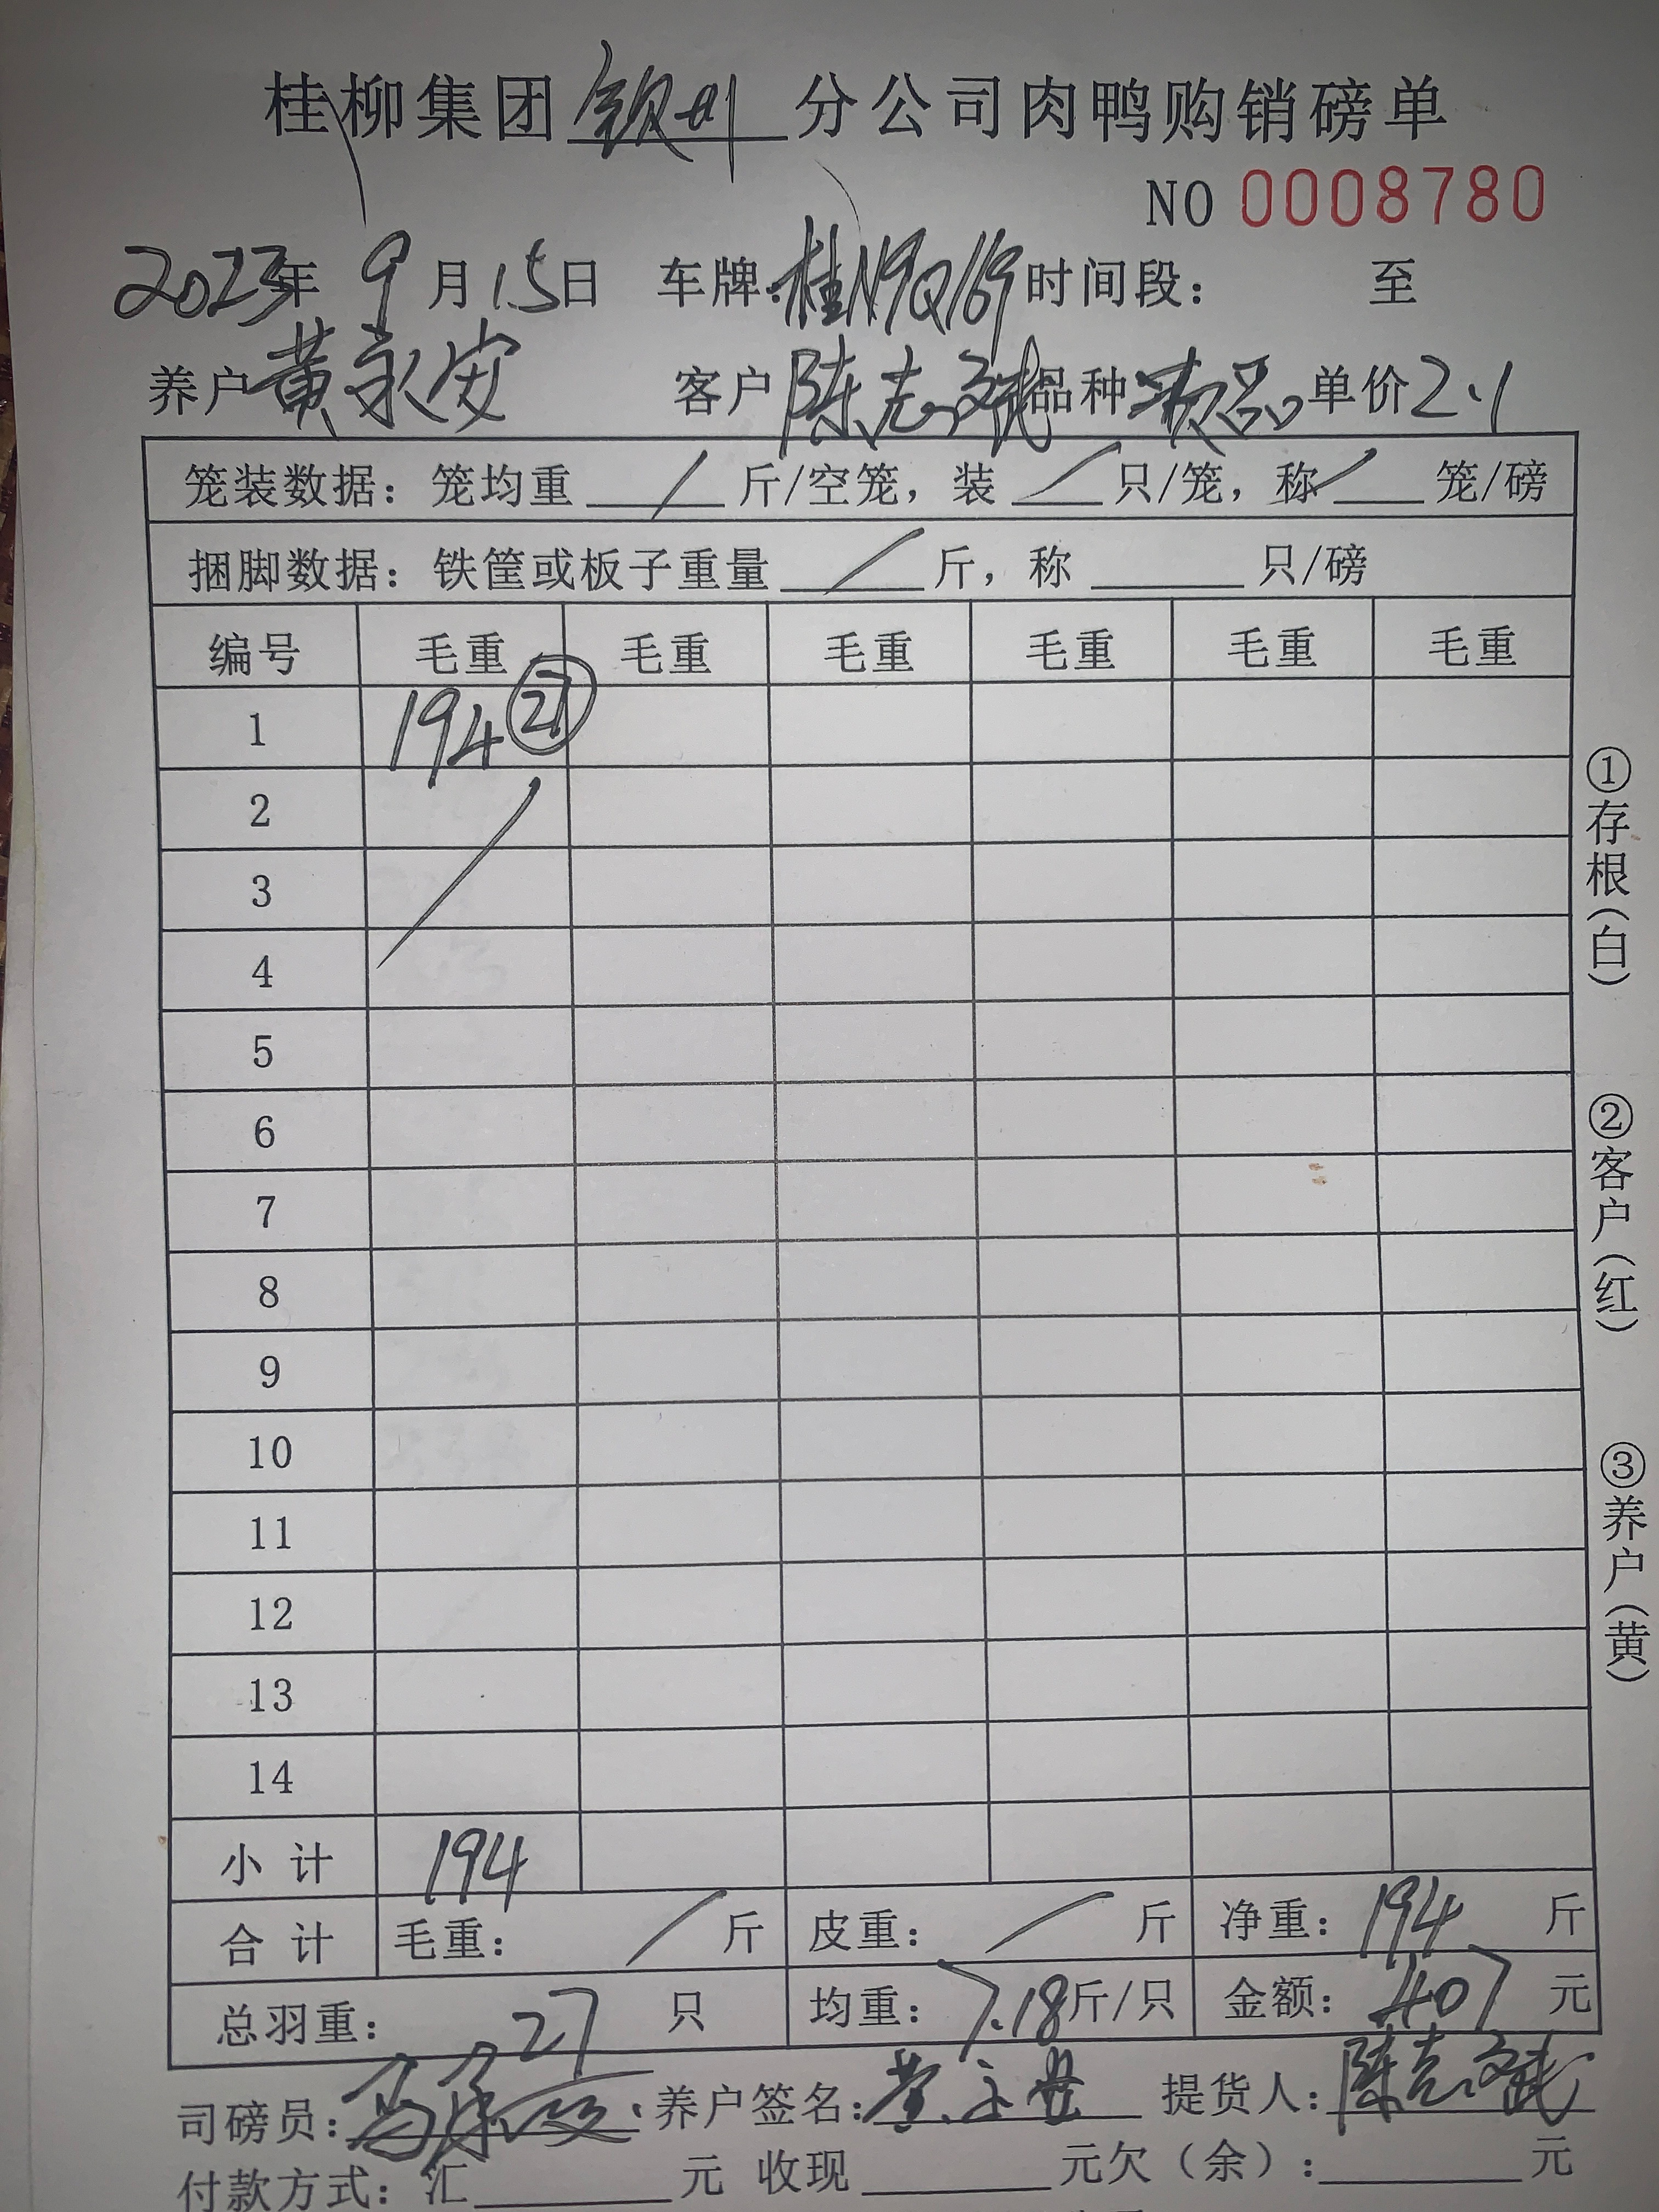 桂柳集团钦州分公司肉鸭购销磅单
NO 0008780
2023年 9月15日 车牌:桂N9Q169时间段: 至
养户黄永安 客户陈志斌品种次品单价2.1
笼装数据:笼均重/斤/空笼,装/只/笼,称/笼/磅
捆脚数据:铁筐或板子重量/斤,称 只/磅
编号 毛重 毛重 毛重 毛重 毛重 毛重
1 194 ㉗
2
3
4
5
6
7
8
9
10
11
12
13
14
小计 194
合计 毛重: / 斤 皮重: / 斤 净重:194斤
总羽重: 27 只 均重:7.18斤/只 金额:407元
司磅员: 养户签名:黄永安 提货人:陈志斌
付款方式:汇 元 收现 元欠(余): 元
①存根(白)
②客户(红)
③养户(黄)